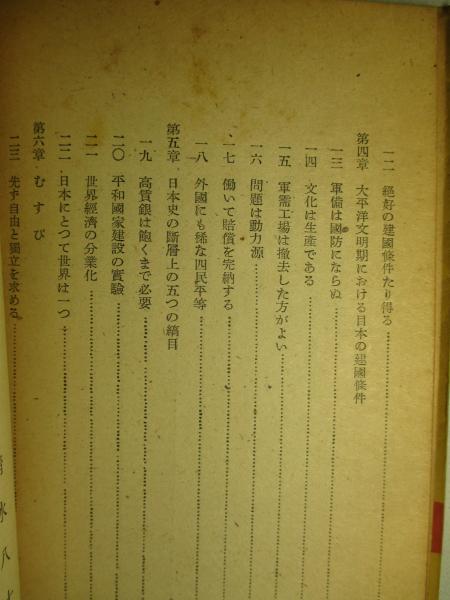 一二 絕好の建國條件たり得る
第四章 太平洋文明期における日本の建國條件
一三 軍備は國防にならぬ
一四 文化は生產である
一五 軍需工場は撤去した方がよい
一六 問題は動力源
一七 働いて賠償を完納する
一八 外國にも稀な四民平等
第五章 日本史の斷層上の五つの縞目
一九 高賃銀は飽くまで必要
二〇 平和國家建設の實驗
二一 世界經濟の分業化
二二 日本にとつて世界は一つ
第六章 むすび
二三 先ず自由と獨立を求める